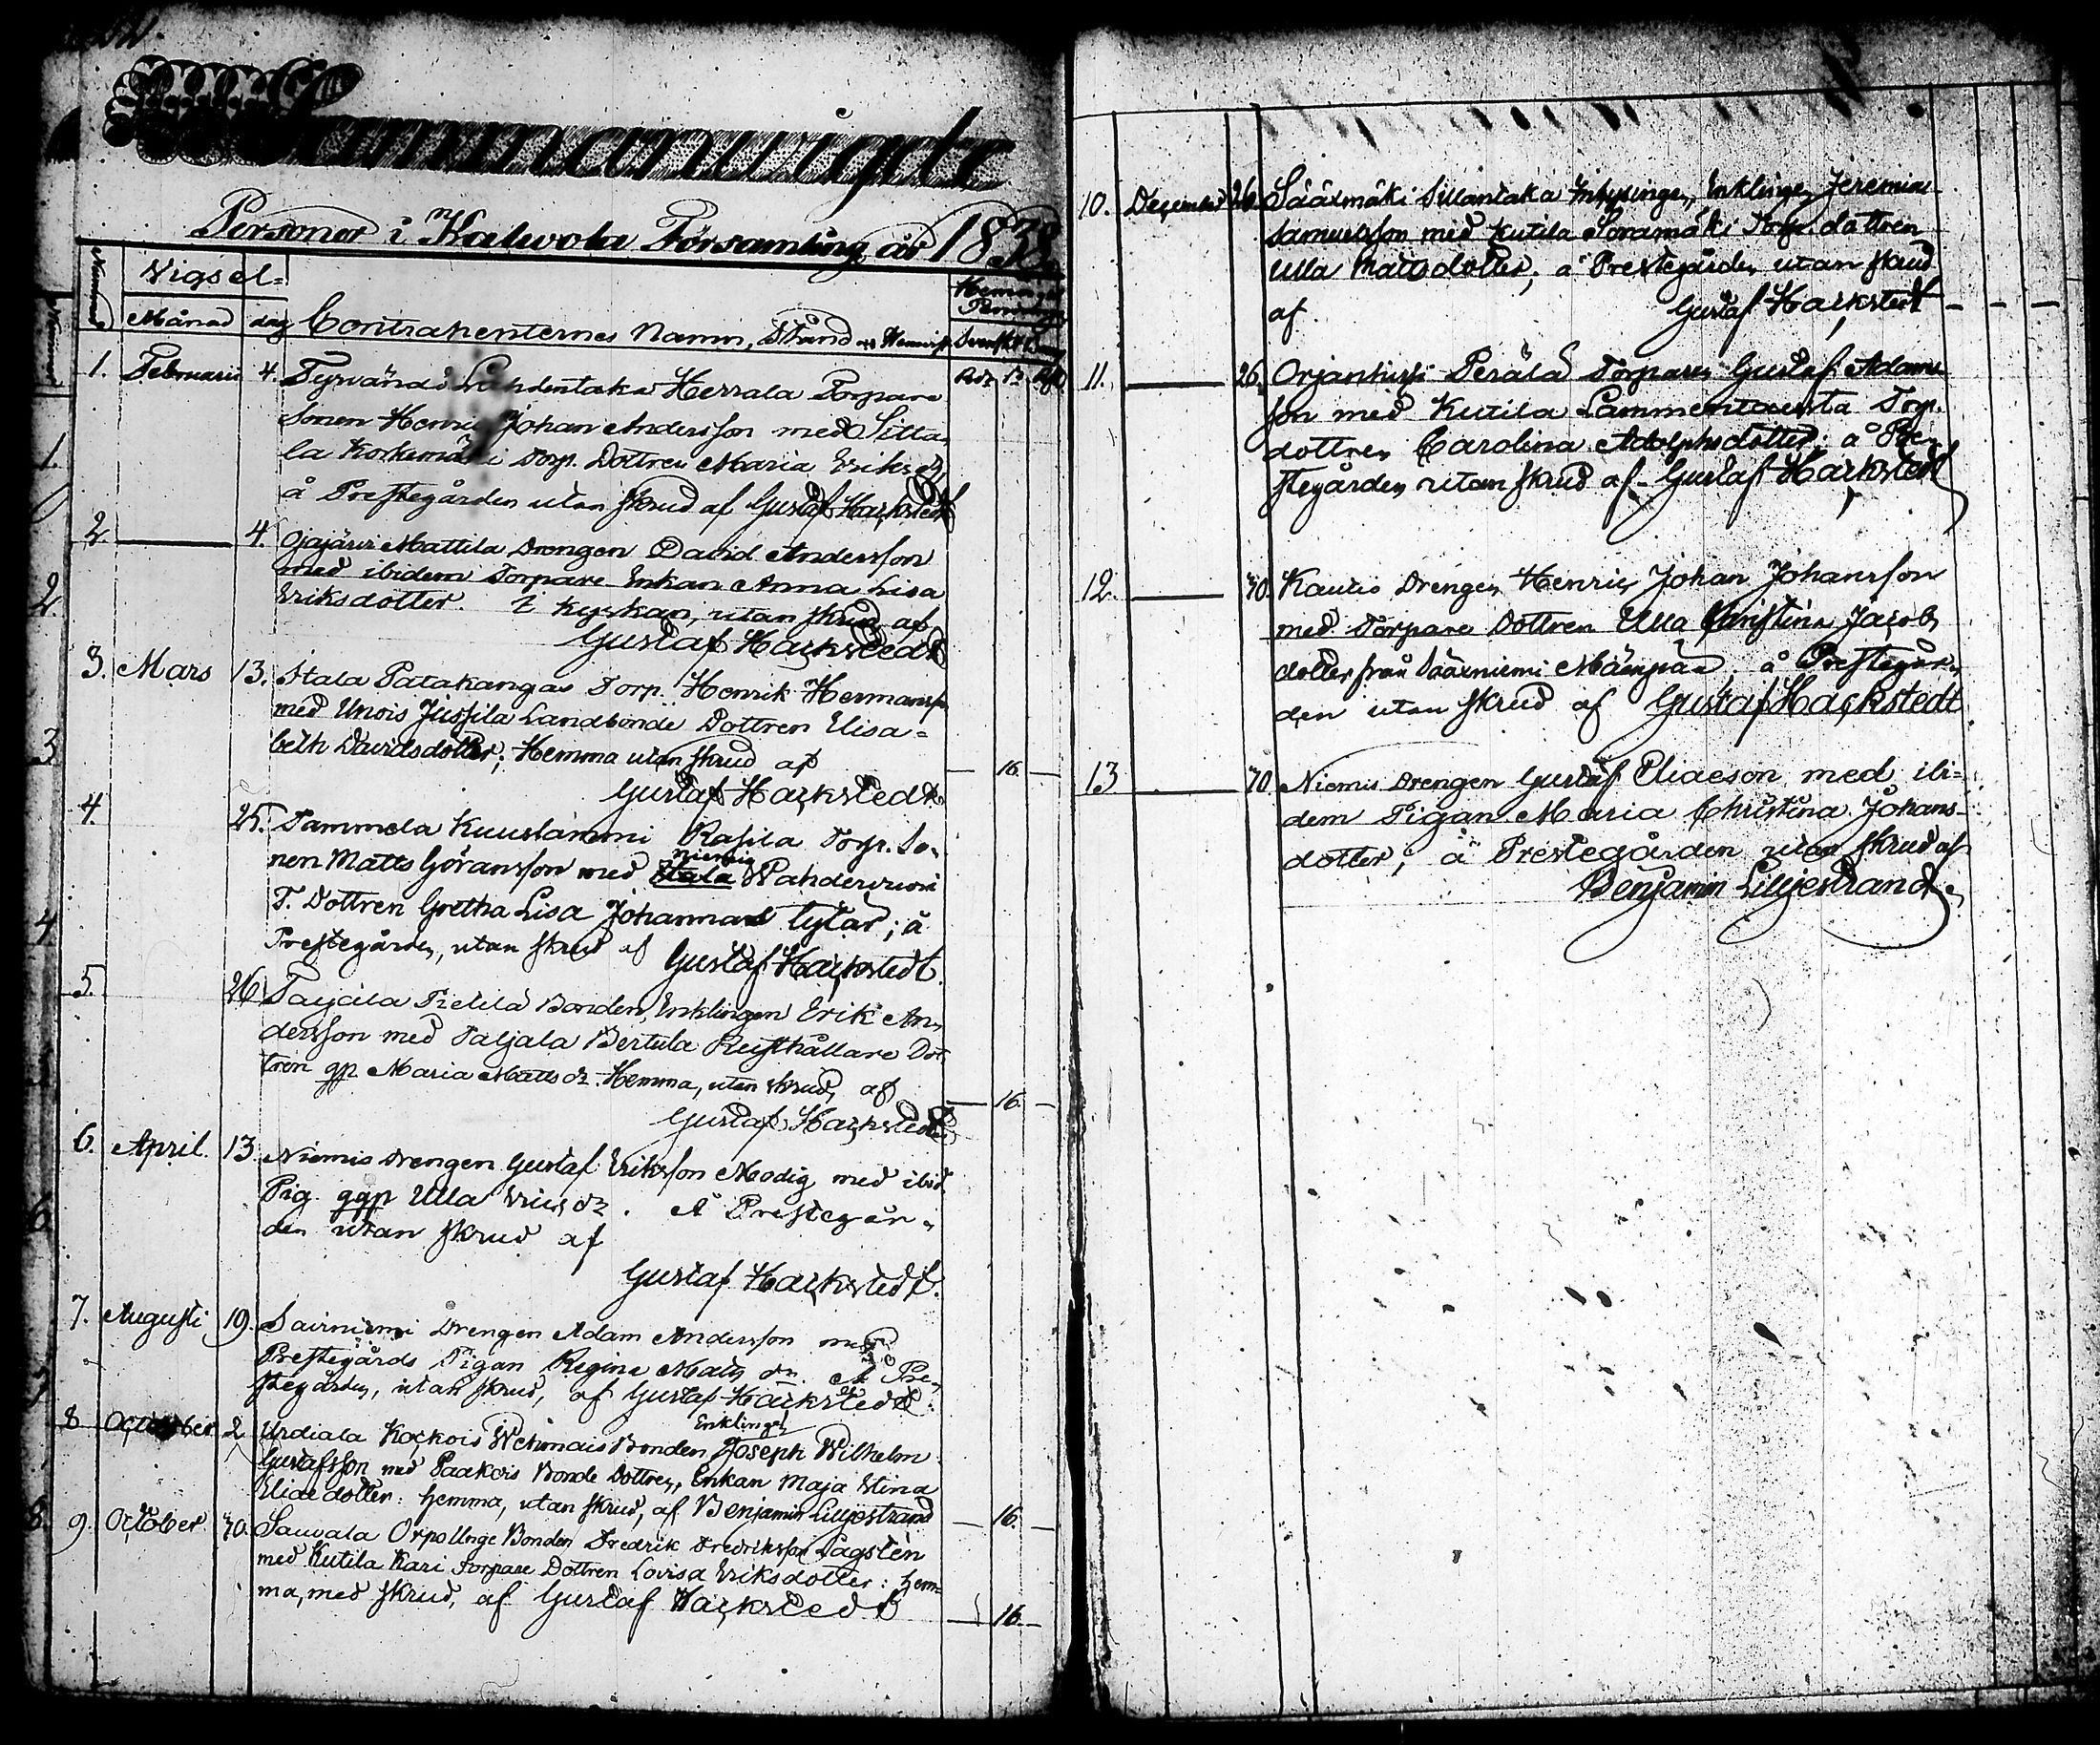 Sammanvigde
Personer i Kalvola Församling år 1838.
Vigsel=
Månad dag Contrahenternes Namn, Stånd och Hemvist
1. Februarii 4. Tyrvändö Lahdentaka Herrala Torpare
sonen Henric Johan Andersson med Sitta-
la Korkemäki Torp. Dottren Maria Eriksdr,
å Prestegården utan skrud af Gustaf Hackstedt
2. 4. Ojajärvi Mattila Drengen David Andersson
med ibidem Torpare Enkan Anna Lisa
Eriksdotter. i kyrkan, utan skrud af
Gustaf Hackstedt
3. Mars 13. Itala Patakangas Torp. Henrik Hermansson
med Unois Jussila Landbonde Dottren Elisa=
beth Davidsdotter; Hemma utan skrud af — 16. —
Gustaf Hackstedt
4. 25. Tammela Kuuslammi Rasila Torp. So-
nen Matts Göransson med Niemis Itala Wahdervuori
T. Dottren Gretha Lisa Johannas tytär; å
Prestegården, utan skrud af Gustaf Hackstedt.
5. 26 Taljala Pietilä Bonden, Enklingen Erik An-
dersson med Taljala Bertula Rusthållare Dot-
tren gp. Maria Matts dr. Hemma, utan skrud, af — 16. —
Gustaf Hackstedt
6. April. 13. Niemis Drengen Gustaf Eriksson Modig med ibid.
Pig. ggp Ulla Ericsdr. A Prestegår-
den utan skrud af
Gustaf Hackstedt.
7. Augusti 19. Sairniemi Drengen Adam Andersson med
Prestegårds Pigan Regina Matts dr. A Pre-
stegården, utan skrud, af Gustaf Hackstedt.
8 October 2 Urdiala Kockois Bonden Enklingen Joseph Wilhelm
Gustafsson med Paakois Bonde Dottren, Enkan Maja Stina
Eliae dotter: hemma, utan skrud, af Benjamin Lilljestrand — 16. —
9. October. 30. Sauvala Orpo Unge Bonden Fredrik Fredriksson Lagstén
med Kutila Kari Torpare Dottren Lovisa Eriksdotter: hem=
ma, med skrud, af Gustaf Hackstedt — 16. —
10. December 26. Sääxmäki Sillantaka Inhysingen, Enklingen Jeremias
Samuelsson med Kutila Soramäki Torp. dottren
Ulla Mattsdotter; å Prestegården utan skrud
af Gustaf Hackstedt — — —
11. 26. Orjanhirsi Perälä Torparen Gustaf Adams
son med Kutila Lammentausta Torp.
dottren Carolina Adolphsdotter; å Pre-
stegården utan skrud af Gustaf Hackstedt
12. 30. Kautis Drengen Henric Johan Johansson
med Torpare Dottren Ulla Christina Jacobs
dotter från Sääxniemi Mäenpää å Prestegår-
den utan skrud af Gustaf Hackstedt
13 30 Niemis Drengen Gustaf Eliaeson med ibi=
dem Pigan Maria Christina Johans-
dotter; å Prestegården utan skrud af
Benjamin Lilljestrand.